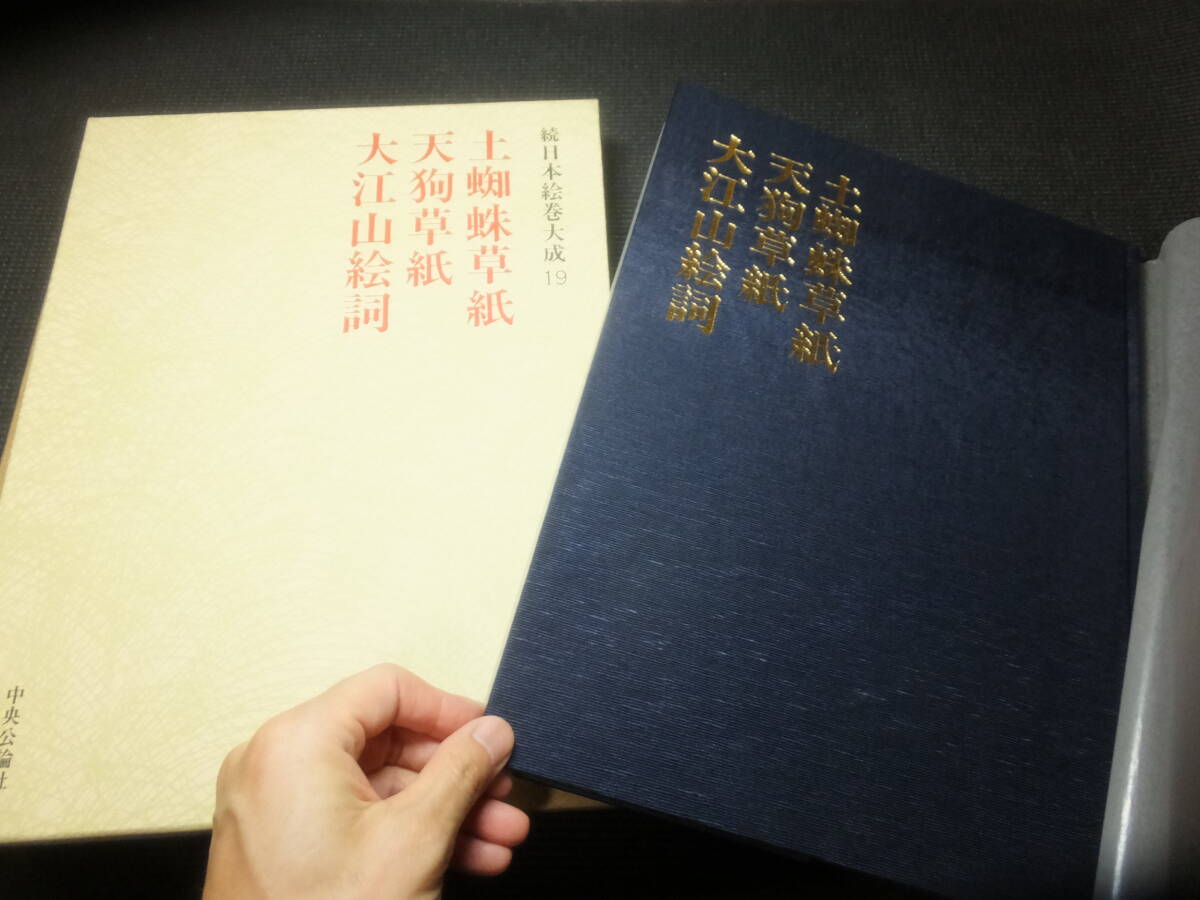 続日本絵巻大成 19
土蜘蛛草紙
天狗草紙
大江山絵詞
中央公論社
土蜘蛛草紙
天狗草紙
大江山絵詞